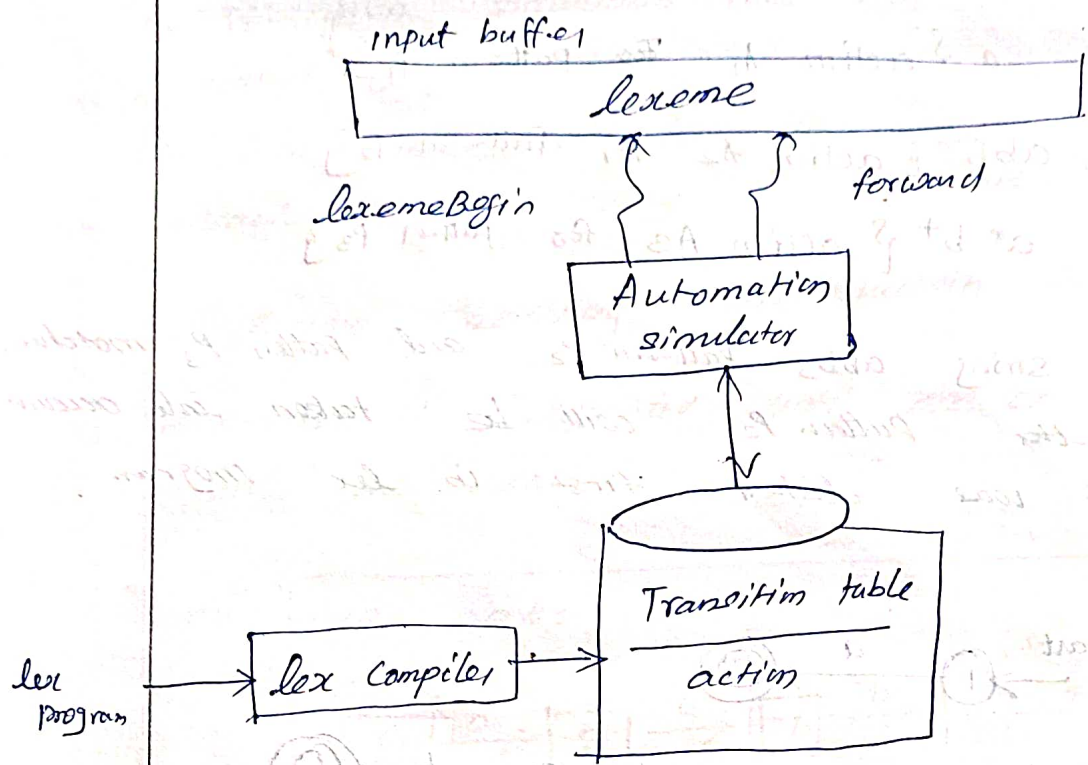 input buffer
lexeme
lexemeBegin
forward
Automation
simulator
Transition table
action
lex compiler
lex
program